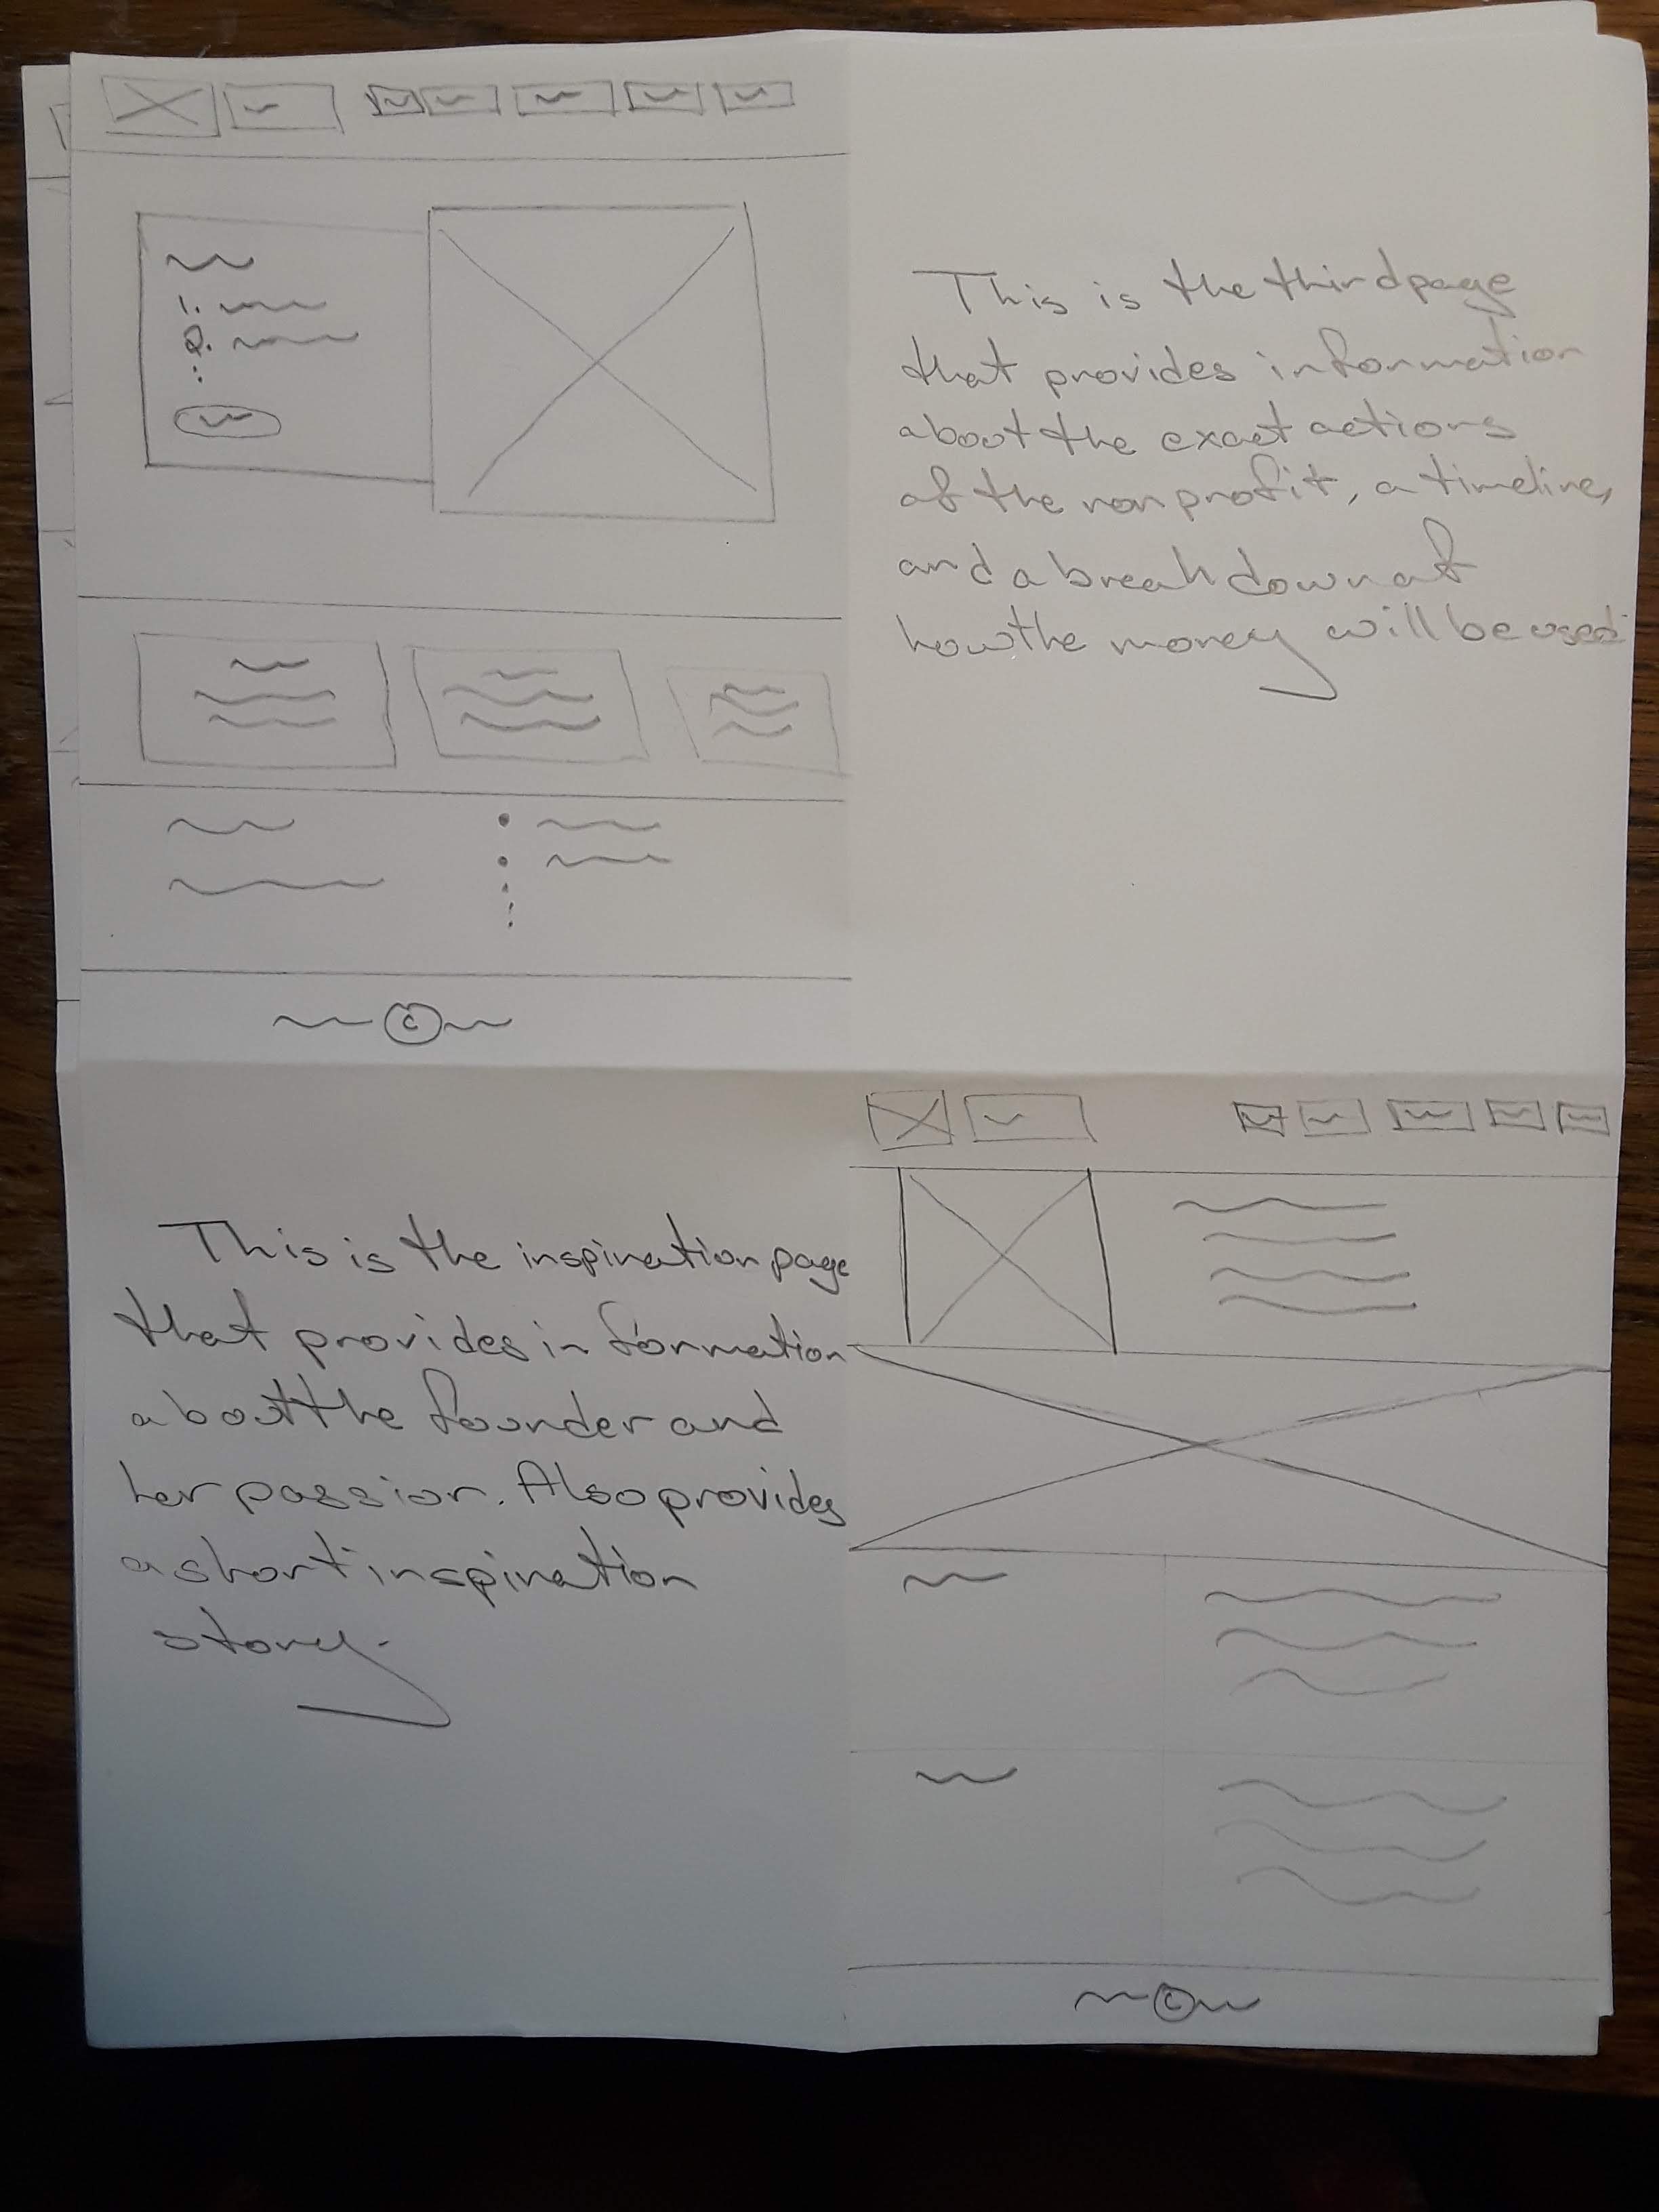 1.
2.
This is the third page
that provides information
about the exact actions
of the nonprofit, a timeline,
and a breakdown of
how the money will be used.
©
This is the inspiration page
that provides information
about the founder and
her passion. Also provides
a short inspiration
story.
©